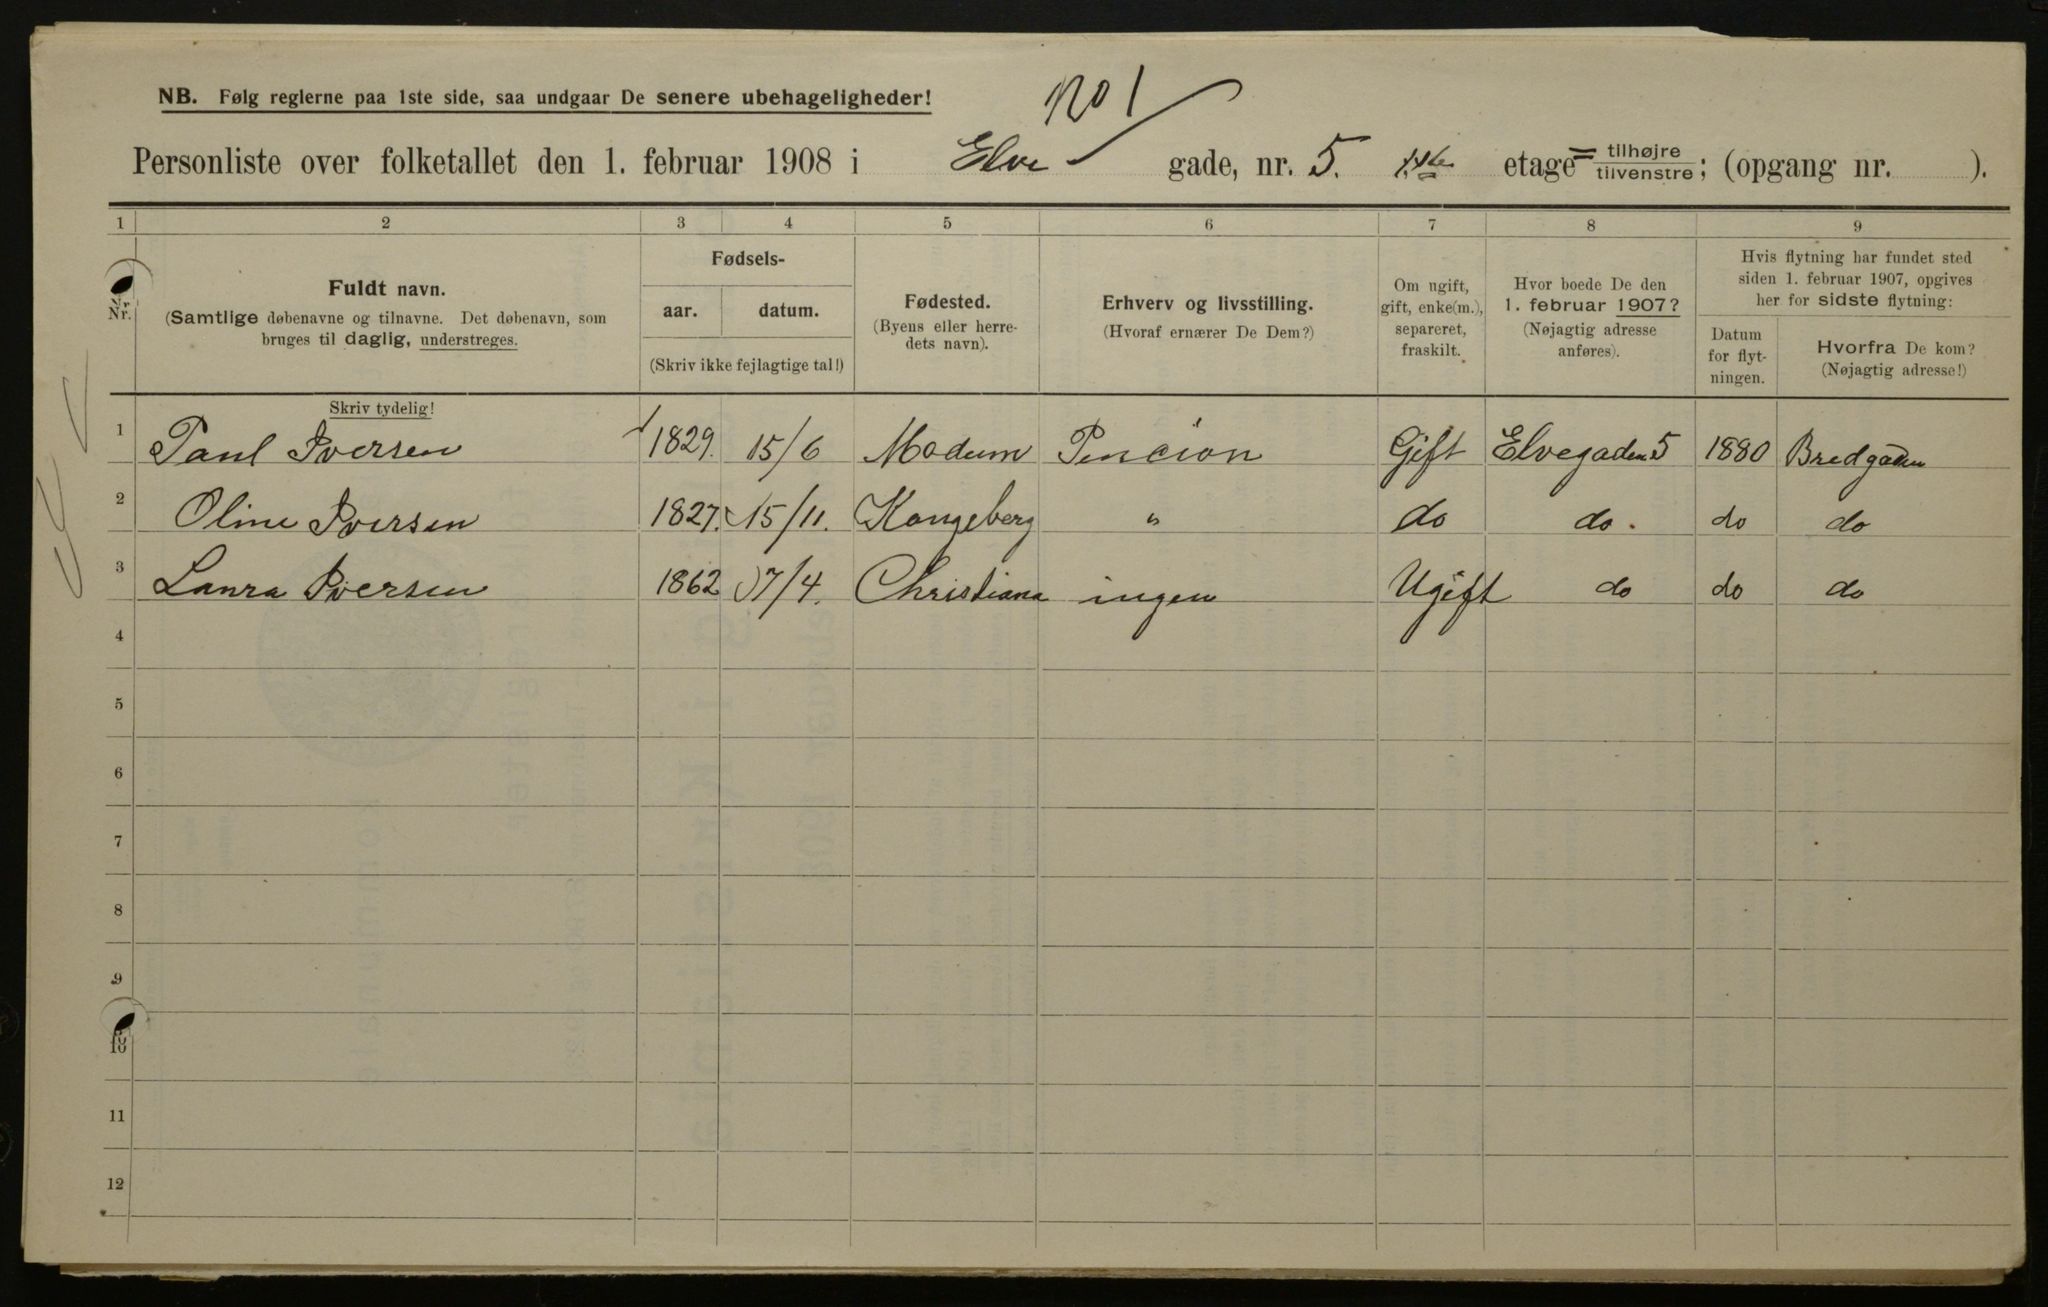 No 1
NB. Følg reglerne paa 1ste side, saa undgaar De senere ubehageligheder!
Personliste over folketallet den 1. februar 1908 i Elve gade, nr. 5. 1ste etage = tilhøjre / tilvenstre; (opgang nr. ).
1 2 3 4 5 6 7 8 9
Nr. Fuldt navn. (Samtlige døbenavne og tilnavne. Det døbenavn, som bruges til daglig, understreges.
Fødsels-
aar. datum.
(Skriv ikke fejlagtige tal!)
Fødested.
(Byens eller herre-
dets navn).
Erhverv og livsstilling.
(Hvoraf ernærer De Dem?)
Om ugift,
gift, enke(m.),
separeret,
fraskilt.
Hvor boede De den
1. februar 1907?
(Nøjagtig adresse
anføres).
Hvis flytning har fundet sted
siden 1. februar 1907, opgives
her for sidste flytning:
Datum
for flyt-
ningen.
Hvorfra De kom?
(Nøjagtig adresse!)
Skriv tydelig!
1 Paul Iversen 1829. 15/6 Modum Pencion Gift Elvegaden 5 1880 Bredgaden
2 Oline Iversen 1827. 15/11. Kongeberg " do do. do do
3 Laura Iversen 1862 17/4. Christiana ingen Ugift do do do
4
5
6
7
8
9
10
11
12